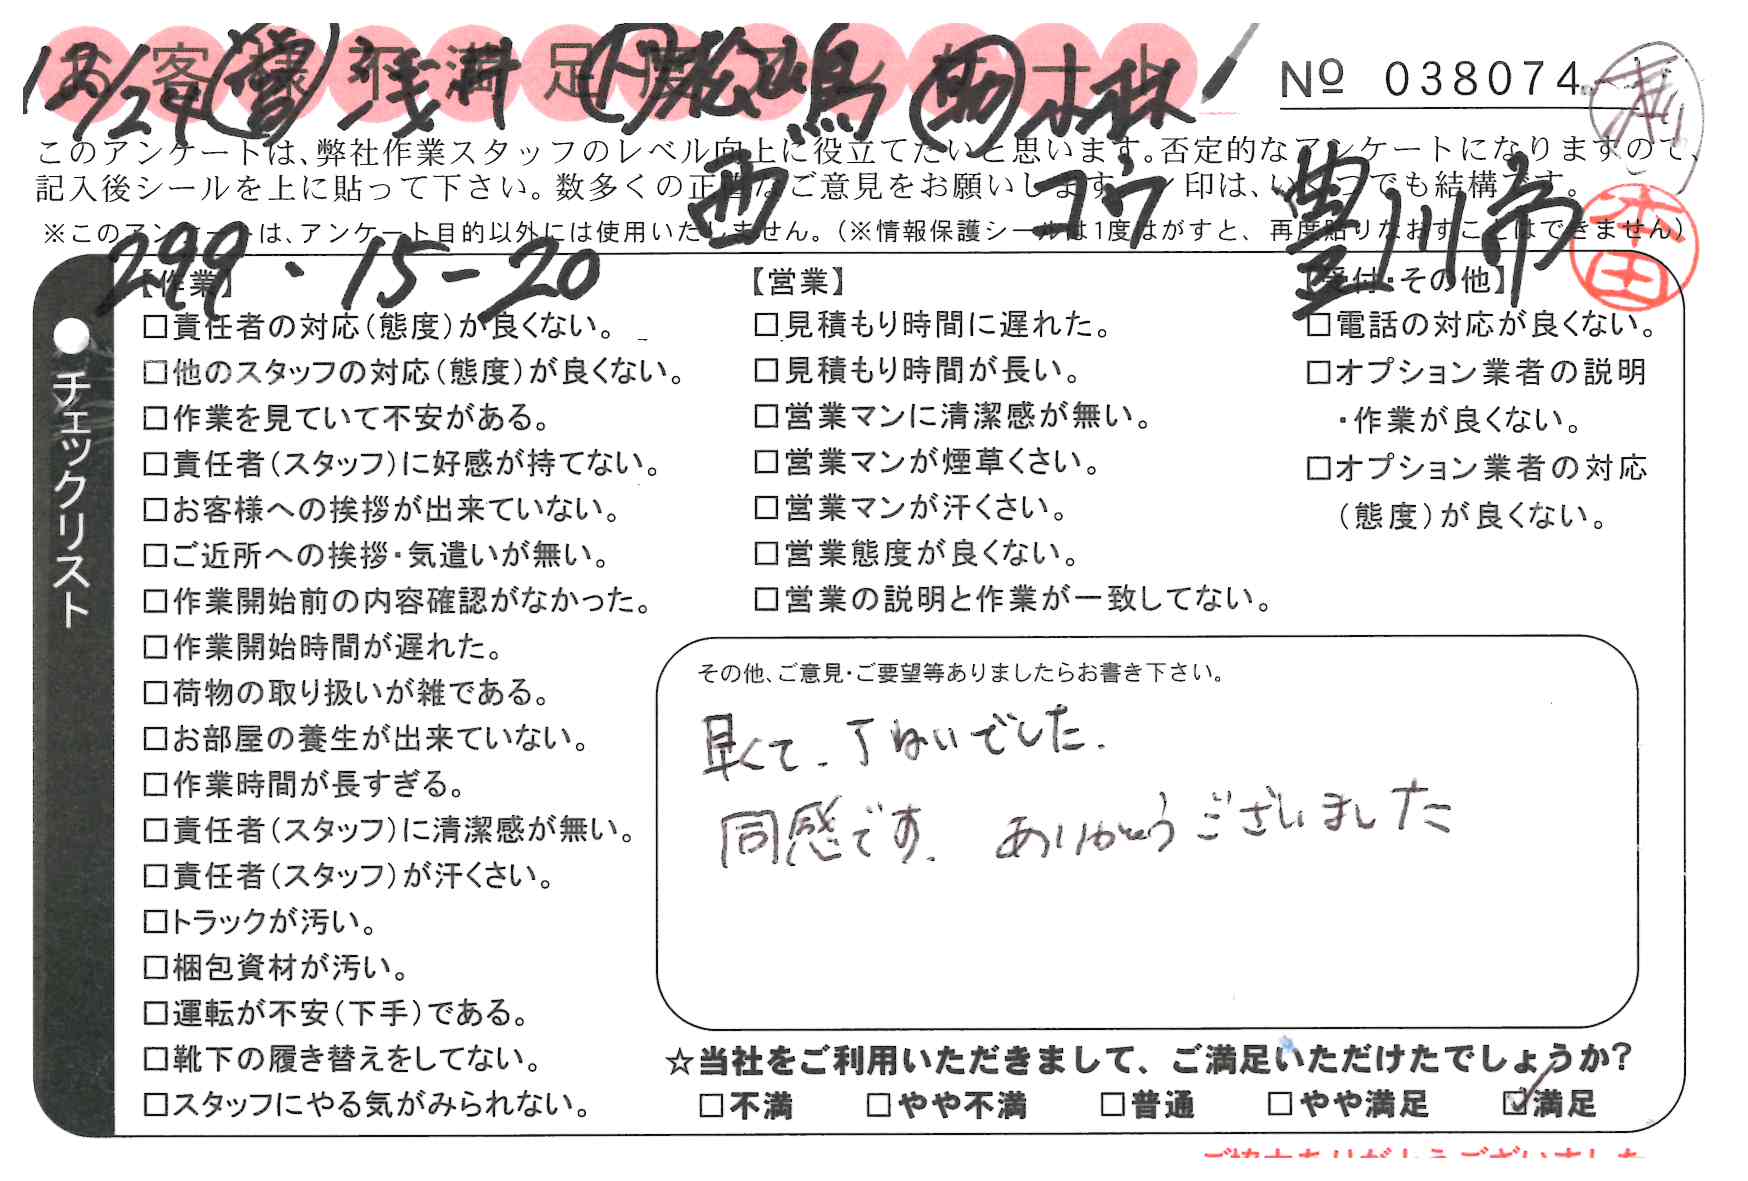 お客様不満足度アンケート
12/24 (営) 浅井 (ド) 松嶋 (助) 小林
No 038074
このアンケートは、弊社作業スタッフのレベル向上に役立てたいと思います。否定的なアンケートになりますので、
記入後シールを上に貼って下さい。数多くの正直なご意見をお願いします。✓印は、いくつでも結構です。
西 コウ 豊川市
※このアンケートは、アンケート目的以外には使用いたしません。(※情報保護シールは1度はがすと、再度貼りなおすことはできません)
本田
299・15-20
●チェックリスト
【作業】
□責任者の対応(態度)が良くない。
□他のスタッフの対応(態度)が良くない。
□作業を見ていて不安がある。
□責任者(スタッフ)に好感が持てない。
□お客様への挨拶が出来ていない。
□ご近所への挨拶・気遣いが無い。
□作業開始前の内容確認がなかった。
□作業開始時間が遅れた。
□荷物の取り扱いが雑である。
□お部屋の養生が出来ていない。
□作業時間が長すぎる。
□責任者(スタッフ)に清潔感が無い。
□責任者(スタッフ)が汗くさい。
□トラックが汚い。
□梱包資材が汚い。
□運転が不安(下手)である。
□靴下の履き替えをしてない。
□スタッフにやる気がみられない。
【営業】
□見積もり時間に遅れた。
□見積もり時間が長い。
□営業マンに清潔感が無い。
□営業マンが煙草くさい。
□営業マンが汗くさい。
□営業態度が良くない。
□営業の説明と作業が一致してない。
【受付・その他】
□電話の対応が良くない。
□オプション業者の説明
・作業が良くない。
□オプション業者の対応
(態度)が良くない。
その他、ご意見・ご要望等ありましたらお書き下さい。
早くて、丁ねいでした.
同感です. ありがとうございました
☆当社をご利用いただきまして、ご満足いただけたでしょうか?
□不満 □やや不満 □普通 □やや満足 ☑満足
ご協力ありがとうございました